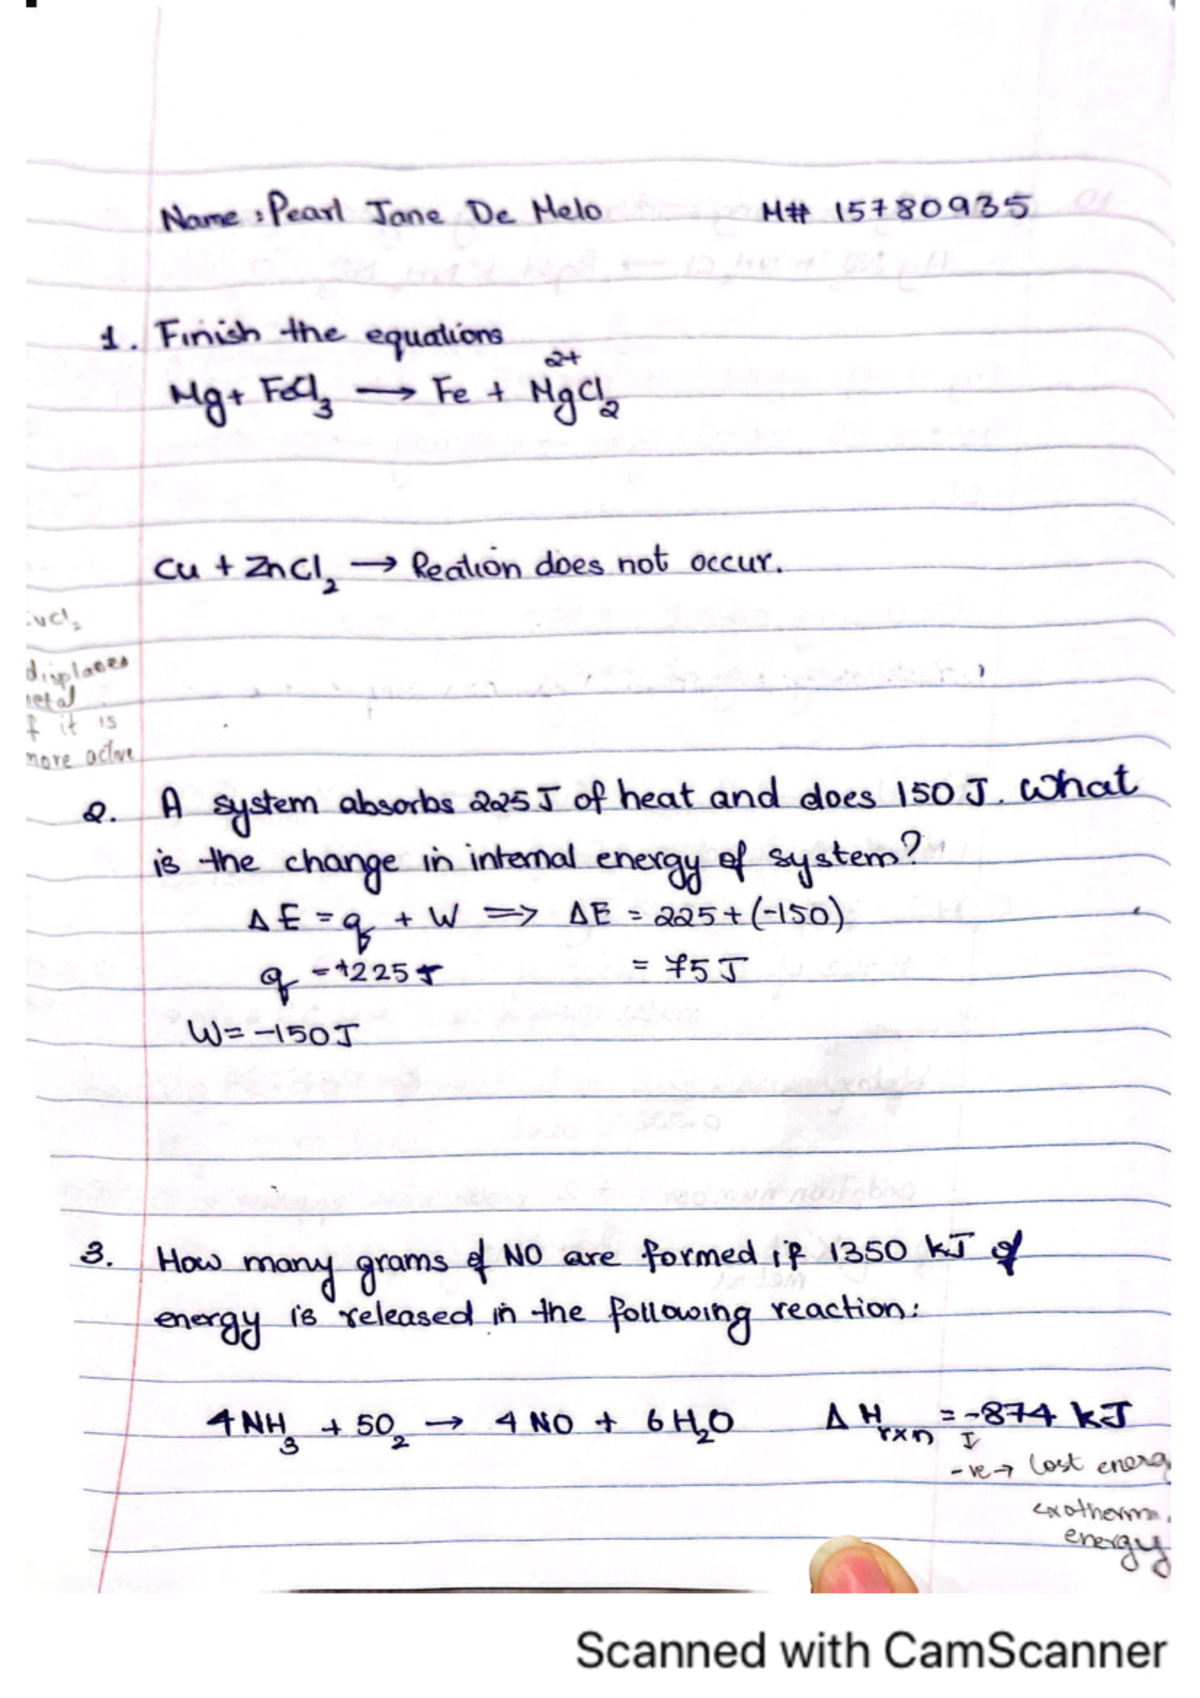 Name: Pearl Jane De Melo M# 15780935
1. Finish the equations
Mg + FeCl3 → Fe + MgCl2
2+
Cu + ZnCl2 → Reation does not occur.
displaces
f it is
more active
2. A system absorbs 225 J of heat and does 150 J. What
is the change in internal energy of system?
ΔE = q + W => ΔE = 225 + (-150)
q = +225 J = 75 J
W = -150 J
3. How many grams of NO are formed if 1350 kJ of
energy is released in the following reaction:
4NH3 + 5O2 → 4NO + 6H2O ΔHrxn = -874 kJ
-ve → lost energ
exotherm
energy
Scanned with CamScanner